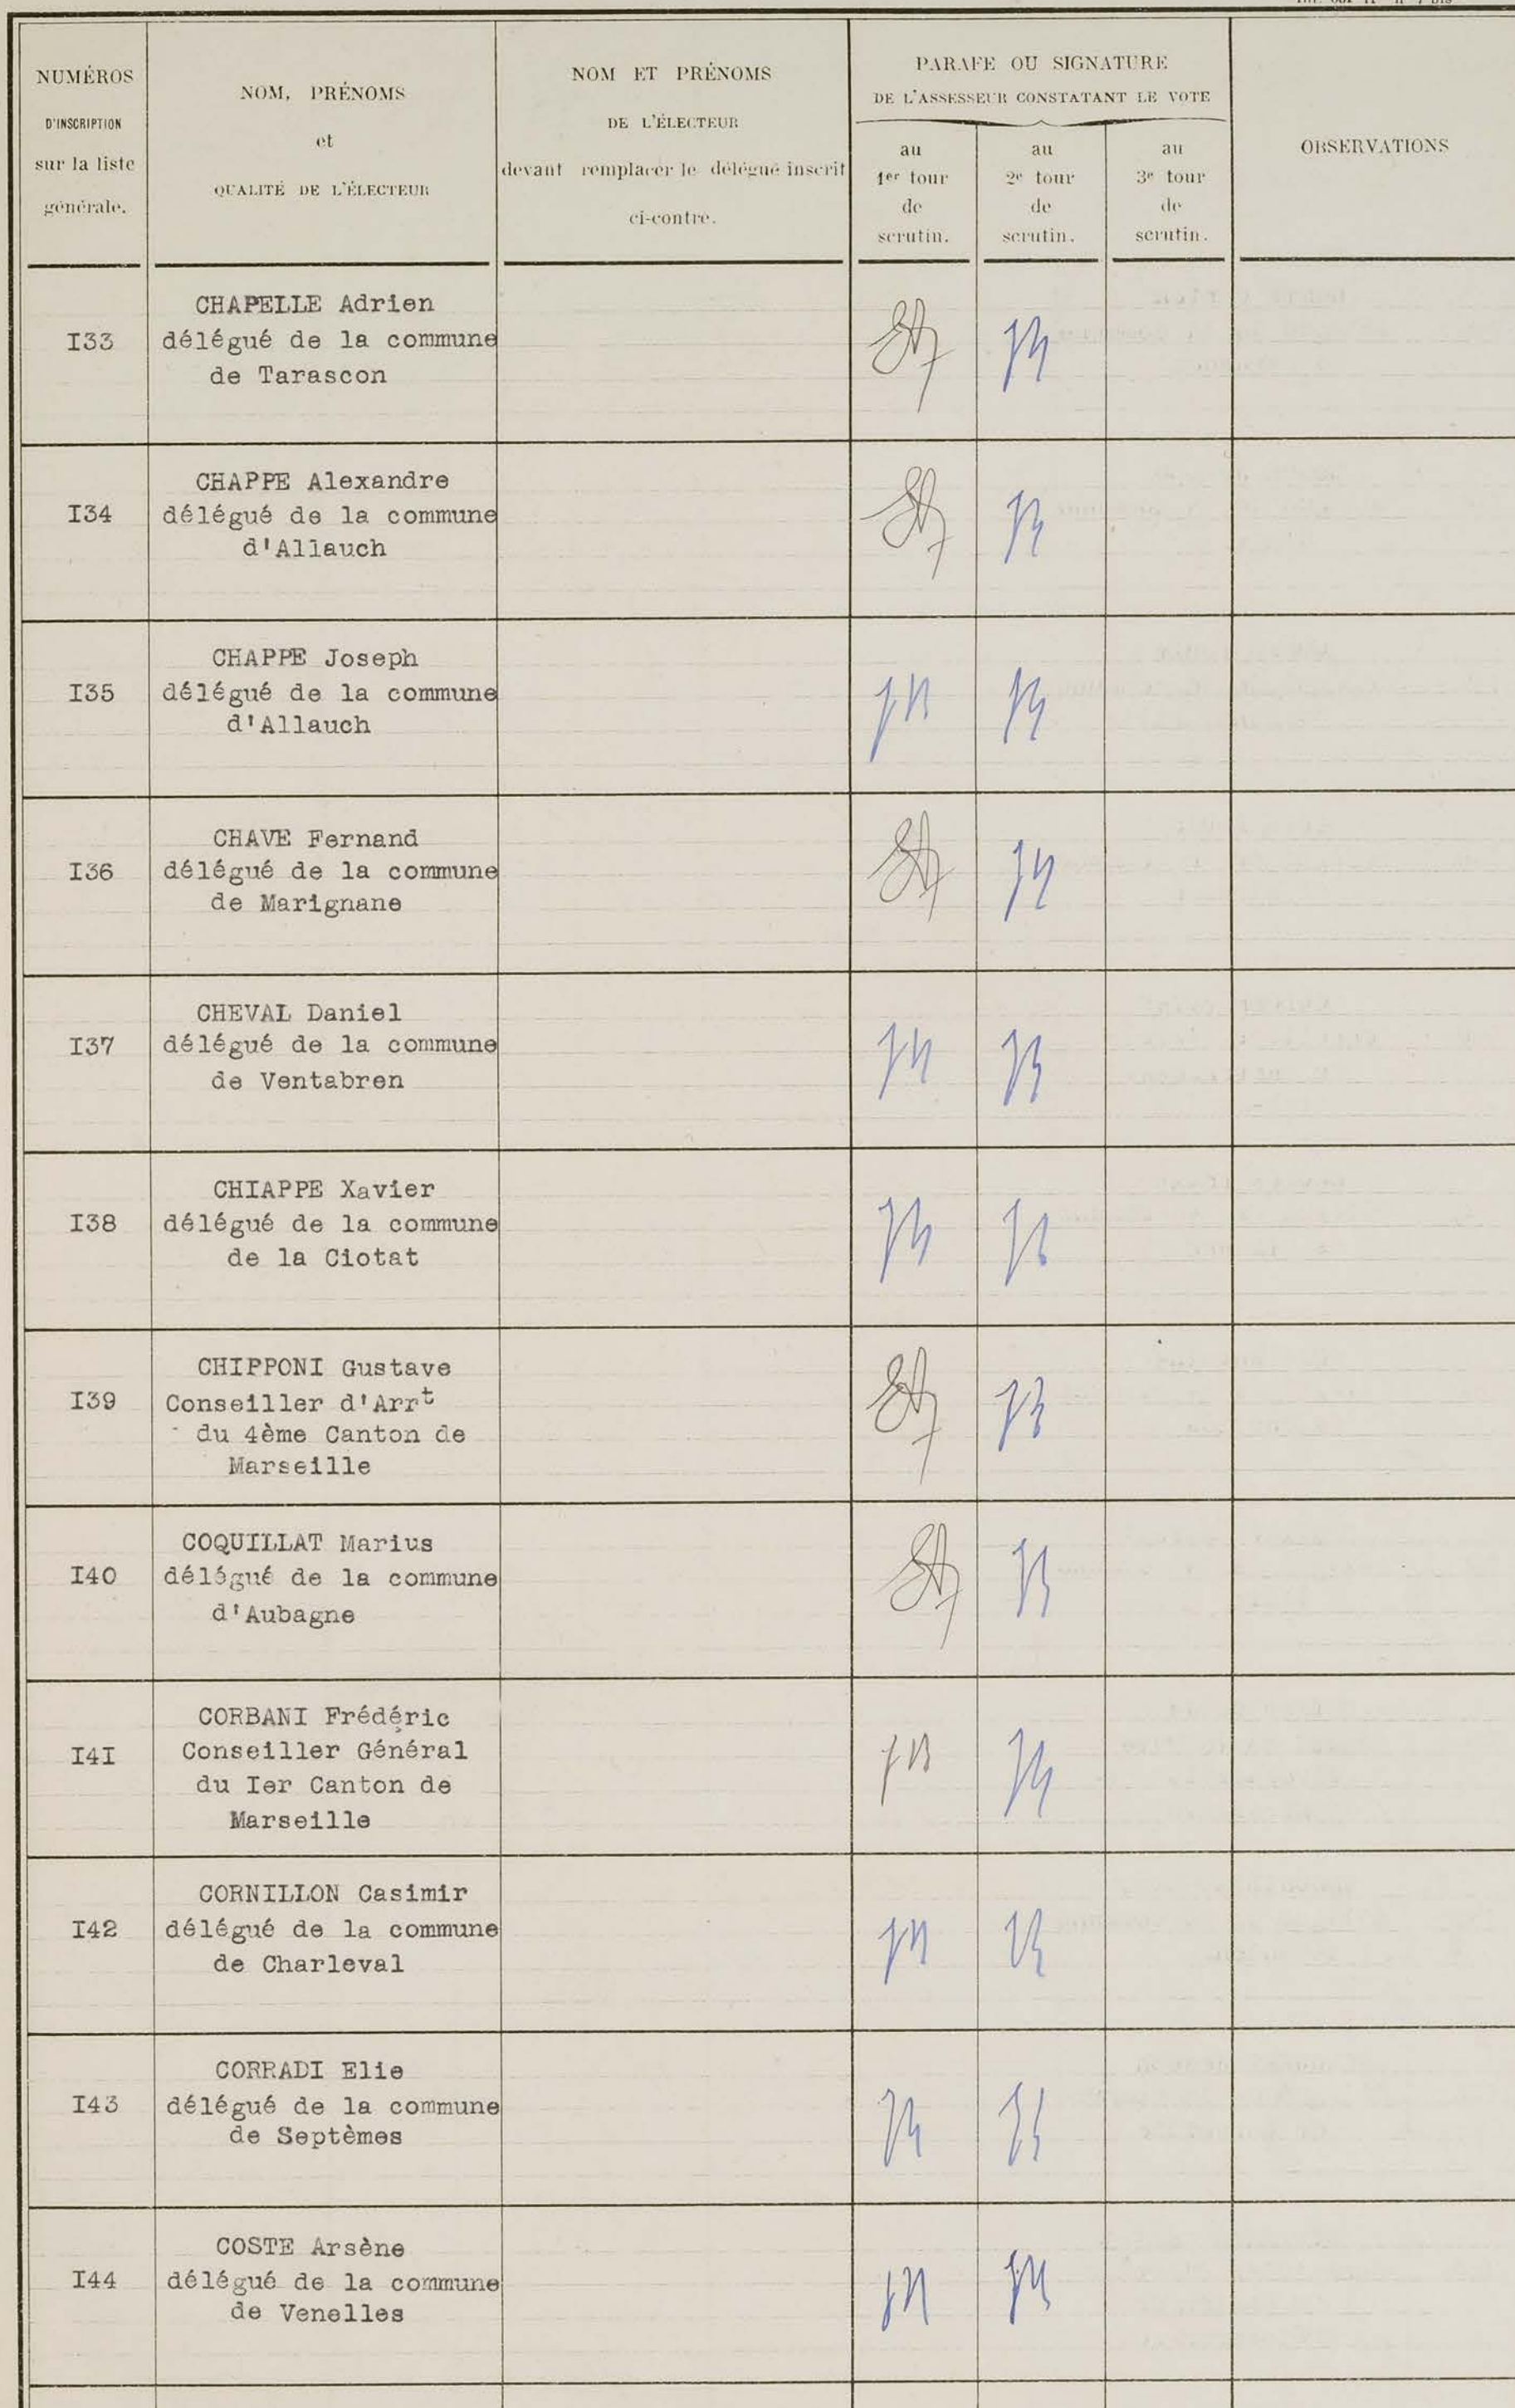 NUMÉROS
D'INSCRIPTION
sur la liste
générale.
NOM, PRÉNOMS
et
QUALITÉ DE L'ÉLECTEUR
NOM ET PRÉNOMS
DE L'ÉLECTEUR
devant remplacer le délégué inscrit
ci-contre.
PARAFE OU SIGNATURE
DE L'ASSESSEUR CONSTATANT LE VOTE
au
1er tour
de
scrutin.
au
2e tour
de
scrutin.
au
3e tour
de
scrutin.
OBSERVATIONS
I33
CHAPELLE Adrien
délégué de la commune
de Tarascon
I34
CHAPPE Alexandre
délégué de la commune
d'Allauch
I35
CHAPPE Joseph
délégué de la commune
d'Allauch
I36
CHAVE Fernand
délégué de la commune
de Marignane
I37
CHEVAL Daniel
délégué de la commune
de Ventabren
I38
CHIAPPE Xavier
délégué de la commune
de la Ciotat
I39
CHIPPONI Gustave
Conseiller d'Arrt
du 4ème Canton de
Marseille
I40
COQUILLAT Marius
délégué de la commune
d'Aubagne
I4I
CORBANI Frédéric
Conseiller Général
du Ier Canton de
Marseille
I42
CORNILLON Casimir
délégué de la commune
de Charleval
I43
CORRADI Elie
délégué de la commune
de Septèmes
I44
COSTE Arsène
délégué de la commune
de Venelles